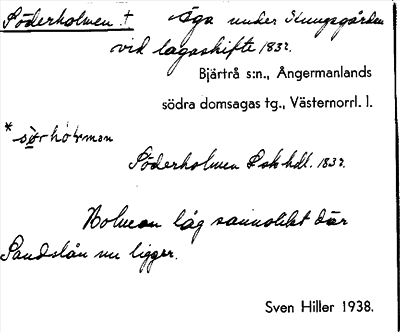 Söderholmen † äga under Kungsgården
vid lagaskifte 1832.
Bjärtrå s:n., Ångermanlands
södra domsagas tg., Västernorrl. l.
* sörholmen
Söderholmen L sk hdl. 1832.
Holmen låg sannolikt där
Sandslån nu ligger.
Sven Hiller 1938.